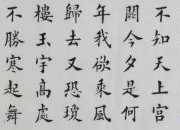 不知天上宮
闕今夕是何
年我欲乘風
歸去又恐瓊
樓玉宇高處
不勝寒起舞